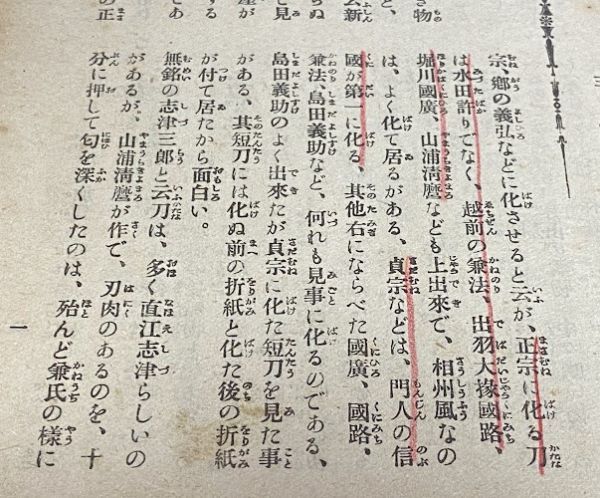 さ物
ちぬ
と見
する
であ
の正
宗、鄕の義弘などに化させると云が、正宗に化る刀
は水田許りでなく、越前の兼法、出羽大掾國路、
堀川國廣、山浦淸麿なども上出來で、相州風なの
は、よく化て居るがある、貞宗などは、門人の信
國が第一に化る、其他右にならべた國廣、國路、
兼法、島田義助など、何れも見事に化るのである、
島田義助のよく出來たが貞宗に化た短刀を見た事
がある、其短刀には化ぬ前の折紙と化た後の折紙
が付て居たから面白い。
無銘の志津三郎と云刀は、多く直江志津らしいの
があるが、山浦淸麿が作で、刃肉のあるのを、十
分に押して匂を深くしたのは、殆んど兼氏の樣に
一